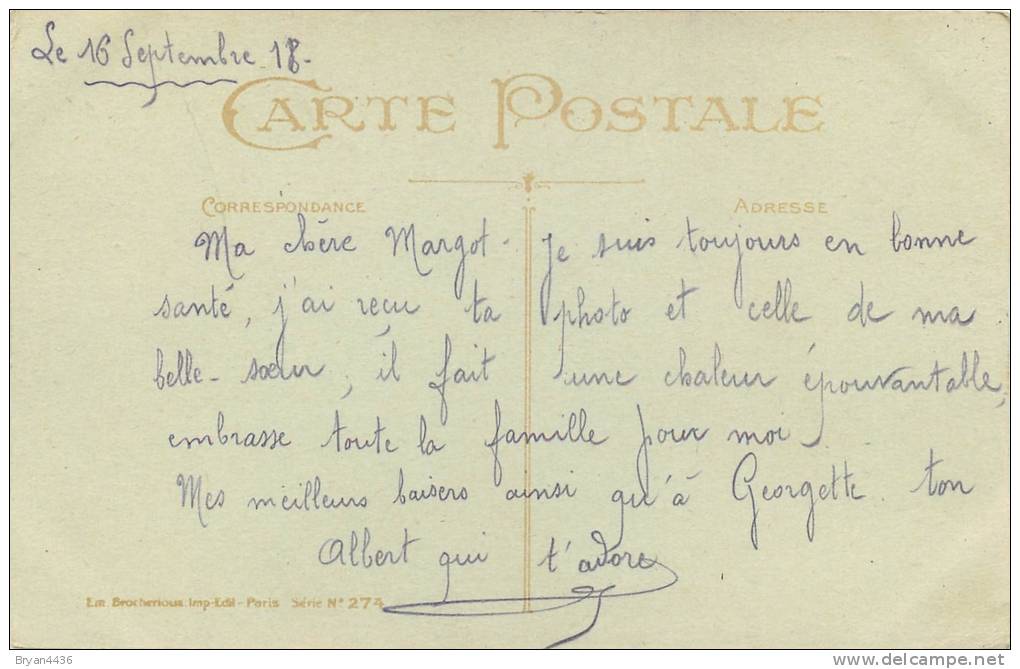 Le 16 Septembre 18-
CARTE POSTALE
CORRESPONDANCE
ADRESSE
Ma chère Margot - Je suis toujours en bonne
santé, j'ai reçu ta photo et celle de ma
belle-sœur, il fait une chaleur épouvantable,
embrasse toute la famille pour moi.
Mes meilleurs baisers ainsi qu'à Georgette. ton
Albert qui t'adore
Em. Brocherioux. Imp-Edit - Paris Série N° 274
Bryan4436
delcampe.net